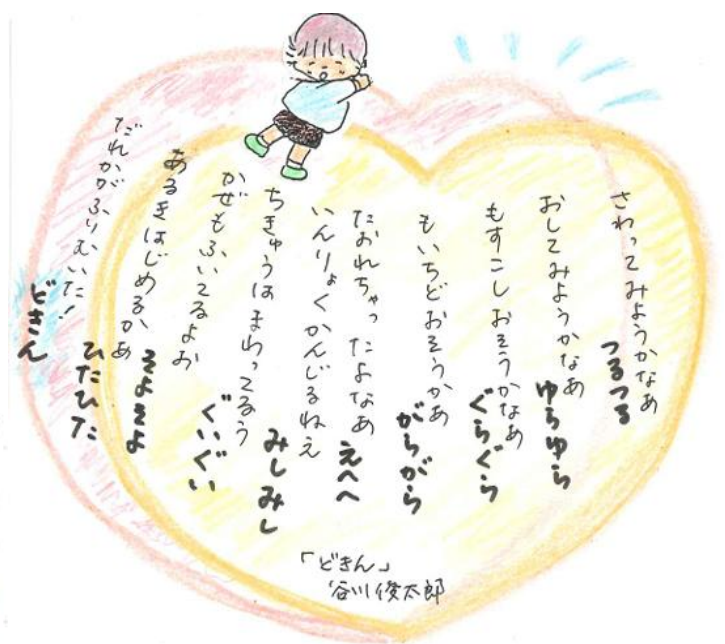 さわってみようかなあ
つるつる
おしてみようかなあ
ゆらゆら
もすこしおそうかなあ
ぐらぐら
もいちどおそうかあ
がらがら
たおれちゃったよなあ
えへへ
いんりょくかんじるねえ
みしみし
ちきゅうはまわってるう
ぐいぐい
かぜもふいてるよお
そよそよ
あるきはじめるかあ
ひたひた
だれかがふりむいた!
どきん
「どきん」
谷川俊太郎